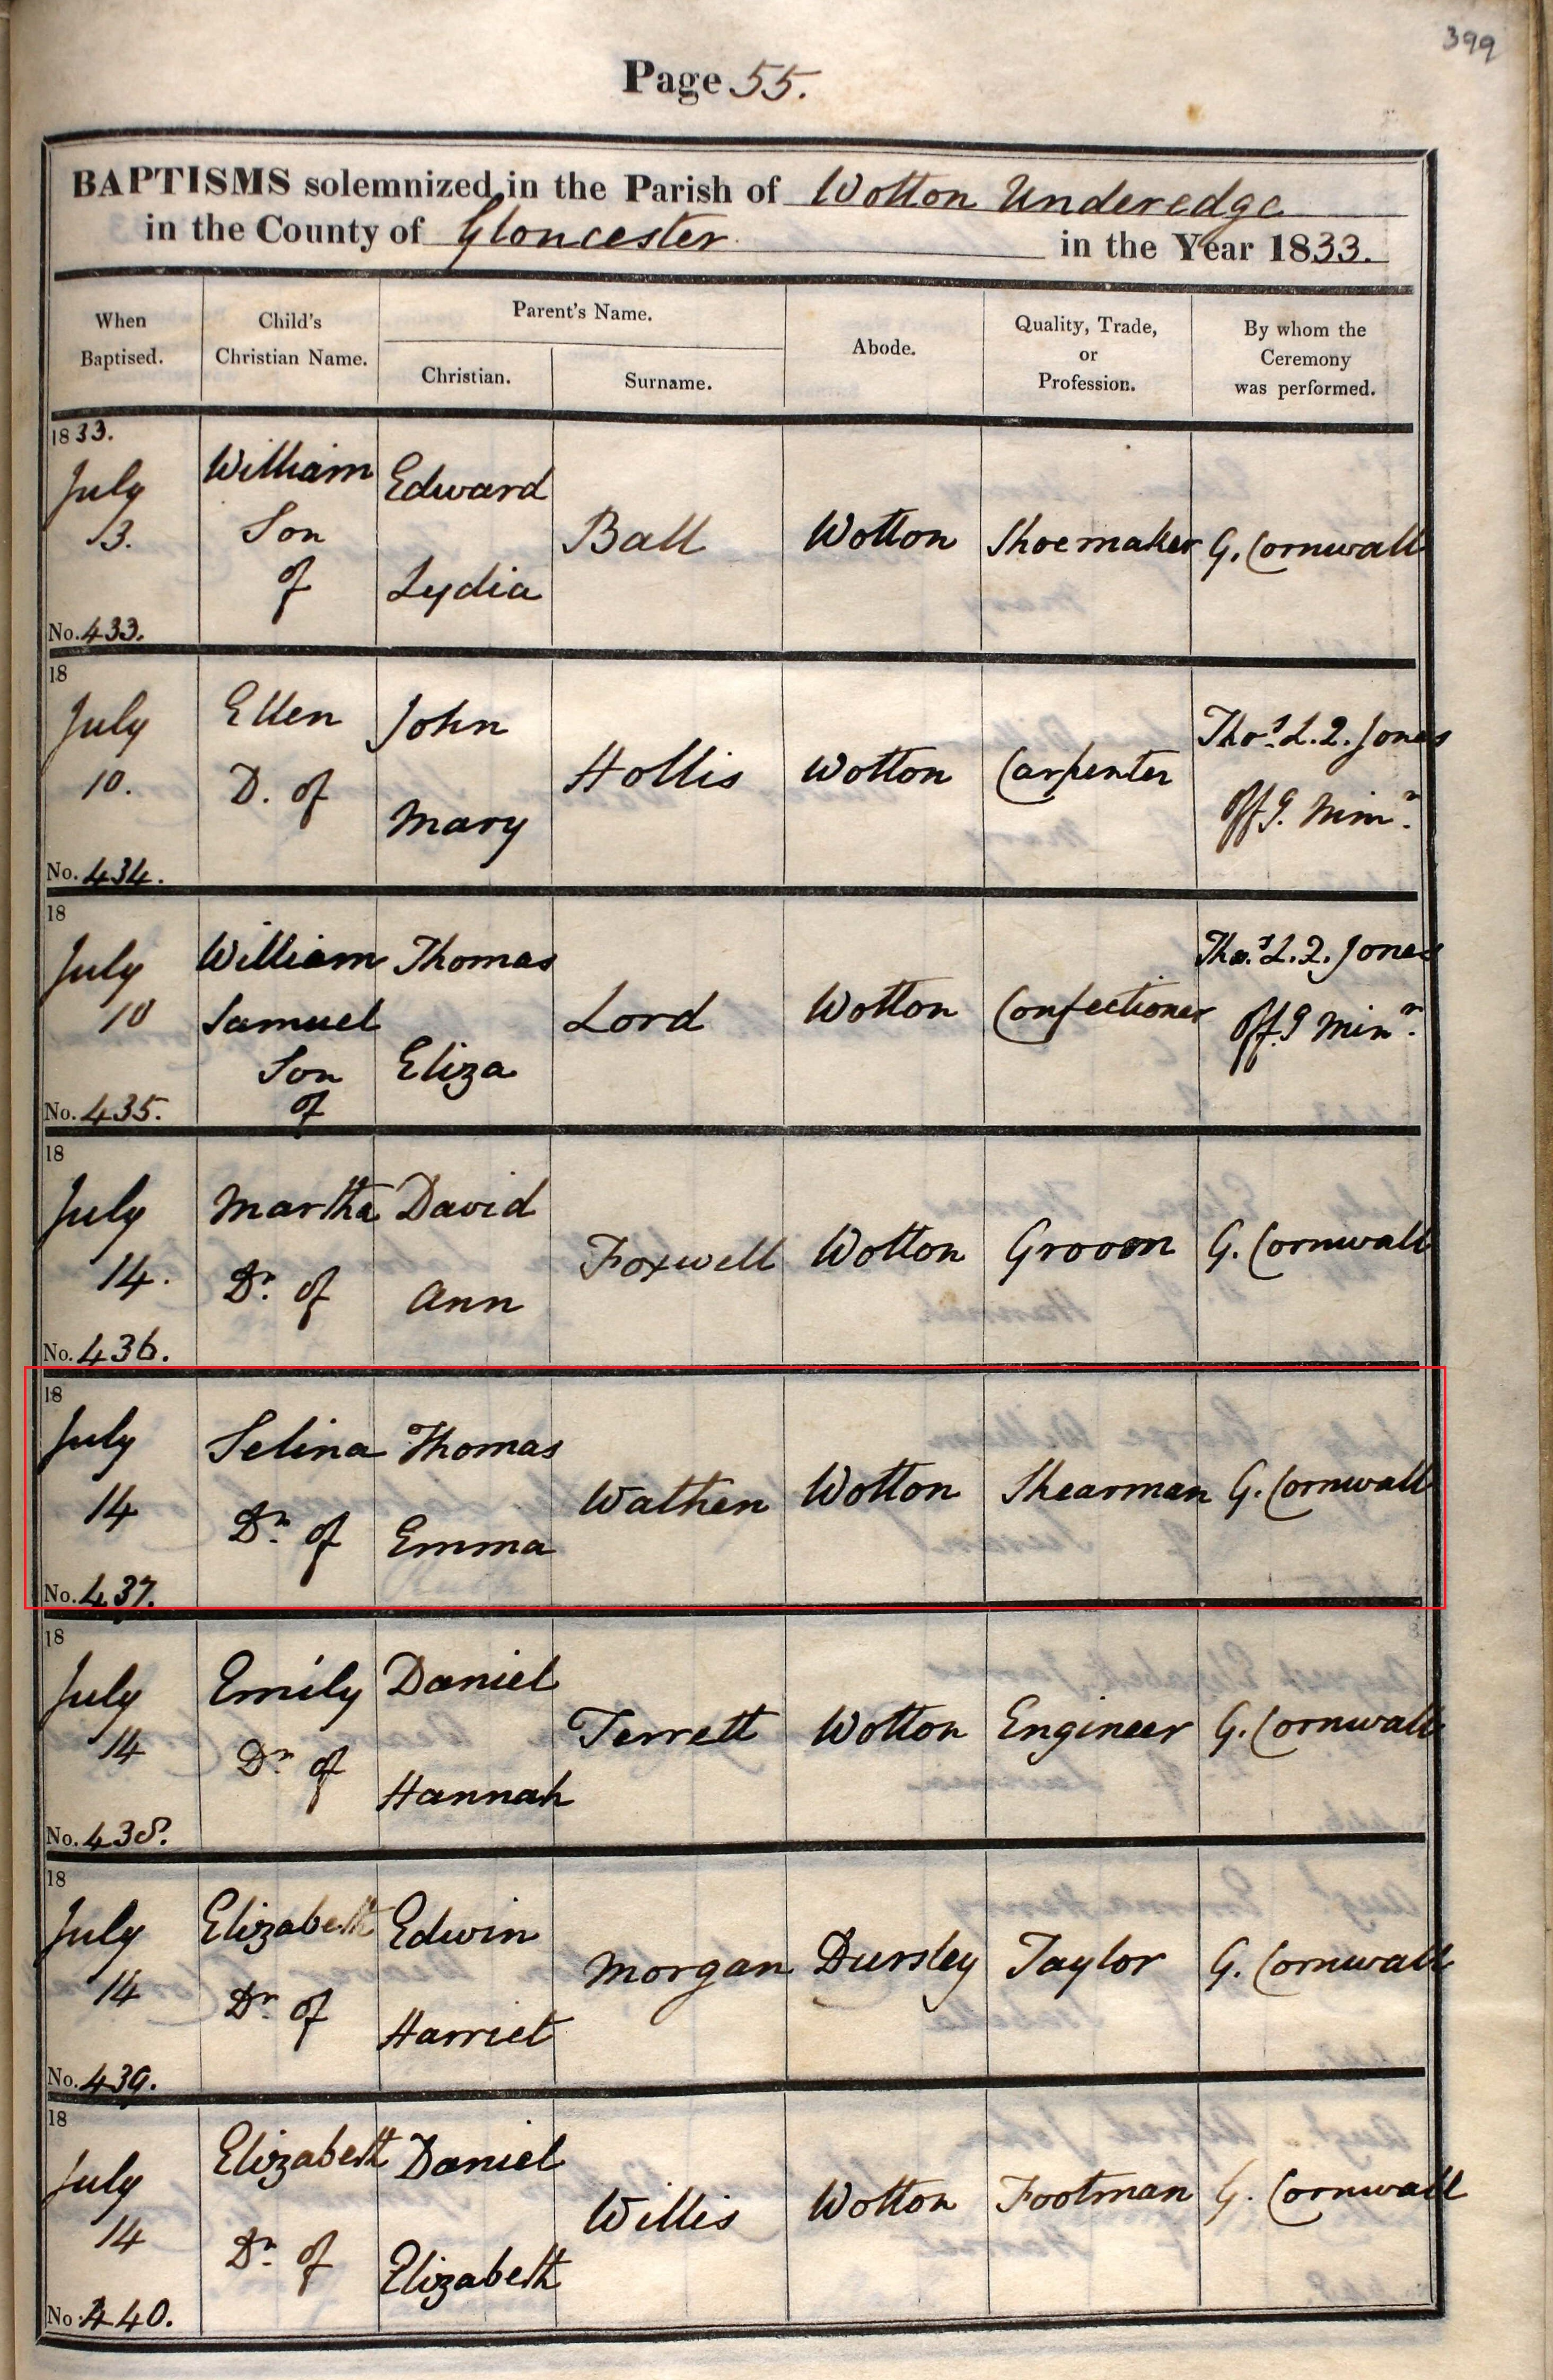 399
Page 55.
BAPTISMS solemnized in the Parish of Wotton Underedge
in the County of Gloucester in the Year 1833.
When Baptised.
Child's Christian Name.
Parent's Name.
Christian.
Surname.
Abode.
Quality, Trade, or Profession.
By whom the Ceremony was performed.
1833.
July
3.
No. 433.
William
Son
of
Edward
Lydia
Ball
Wotton
Shoemaker
G. Cornwall
18
July
10.
No. 434.
Ellen
D. of
John
Mary
Hollis
Wotton
Carpenter
Thos. L. 2. Jones
Offg. Minr.
18
July
10
No. 435.
William
Samuel
Son
of
Thomas
Eliza
Lord
Wotton
Confectioner
Thos. L. 2. Jones
Offg Minr.
18
July
14.
No. 436.
Martha
Dr. of
David
Ann
Foxwell
Wotton
Groom
G. Cornwall
18
July
14
No. 437.
Selina
Dr. of
Thomas
Emma
Wathen
Wotton
Shearman
G. Cornwall
18
July
14
No. 438.
Emily
Dr. of
Daniel
Hannah
Terrett
Wotton
Engineer
G. Cornwall
18
July
14
No. 439.
Elizabeth
Dr. of
Edwin
Harriet
Morgan
Dursley
Taylor
G. Cornwall
18
July
14
No. 440.
Elizabeth
Dr. of
Daniel
Elizabeth
Willis
Wotton
Footman
G. Cornwall